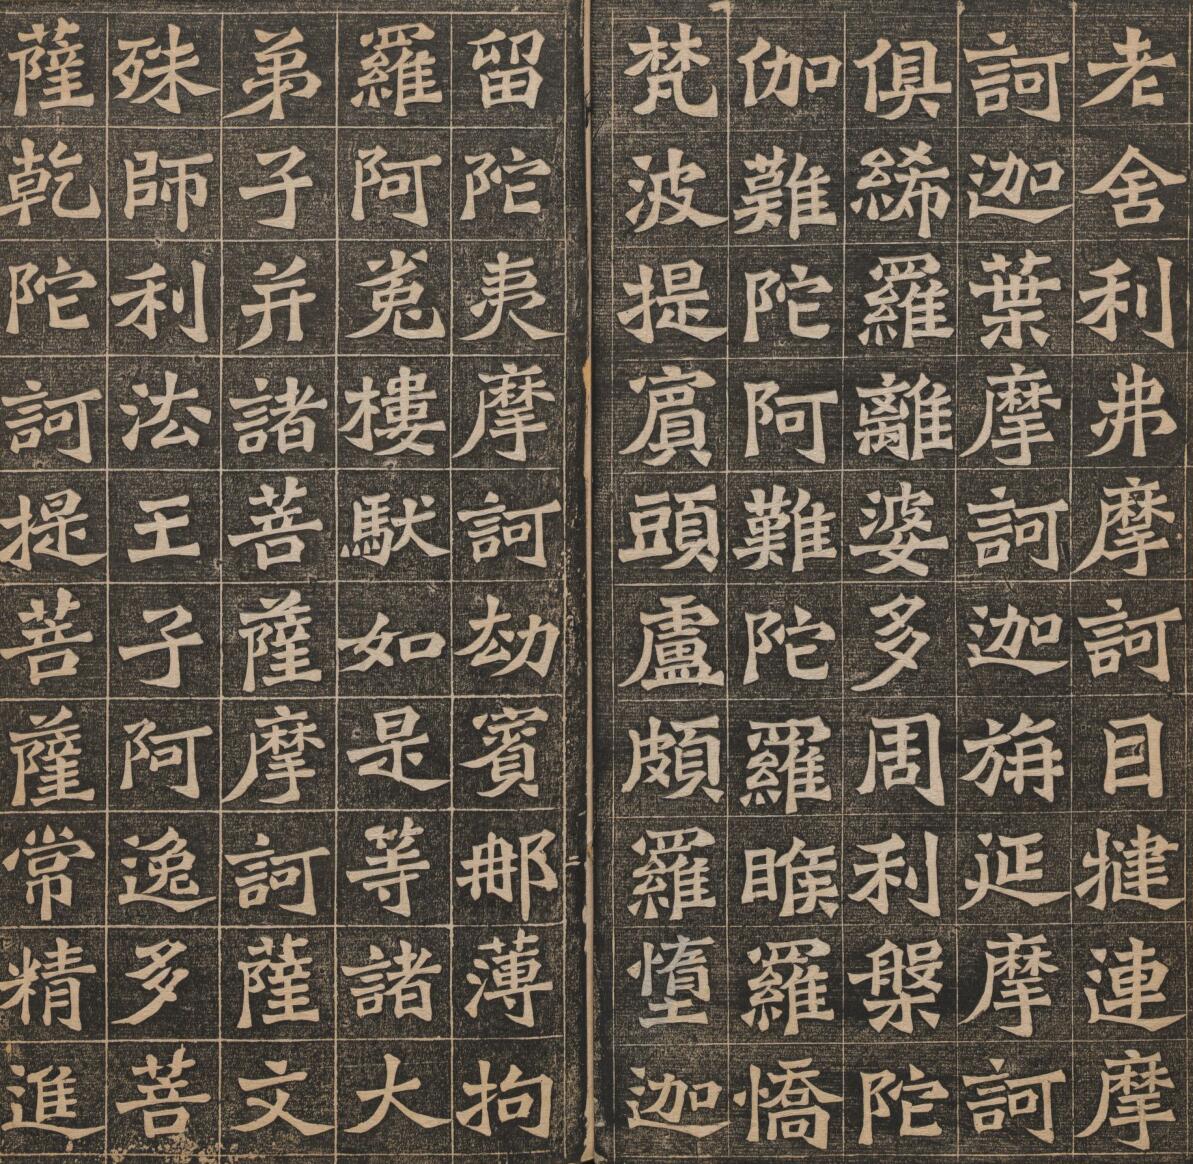 老舍利弗摩訶目揵連摩
訶迦葉摩訶迦旃延摩訶
俱絺羅離婆多周利槃陀
伽難陀阿難陀羅睺羅憍
梵波提賔頭盧頗羅墮迦
留陀夷摩訶劫賓那薄拘
羅阿㝹樓馱如是等諸大
弟子并諸菩薩摩訶薩文
殊師利法王子阿逸多菩
薩乾陀訶提菩薩常精進